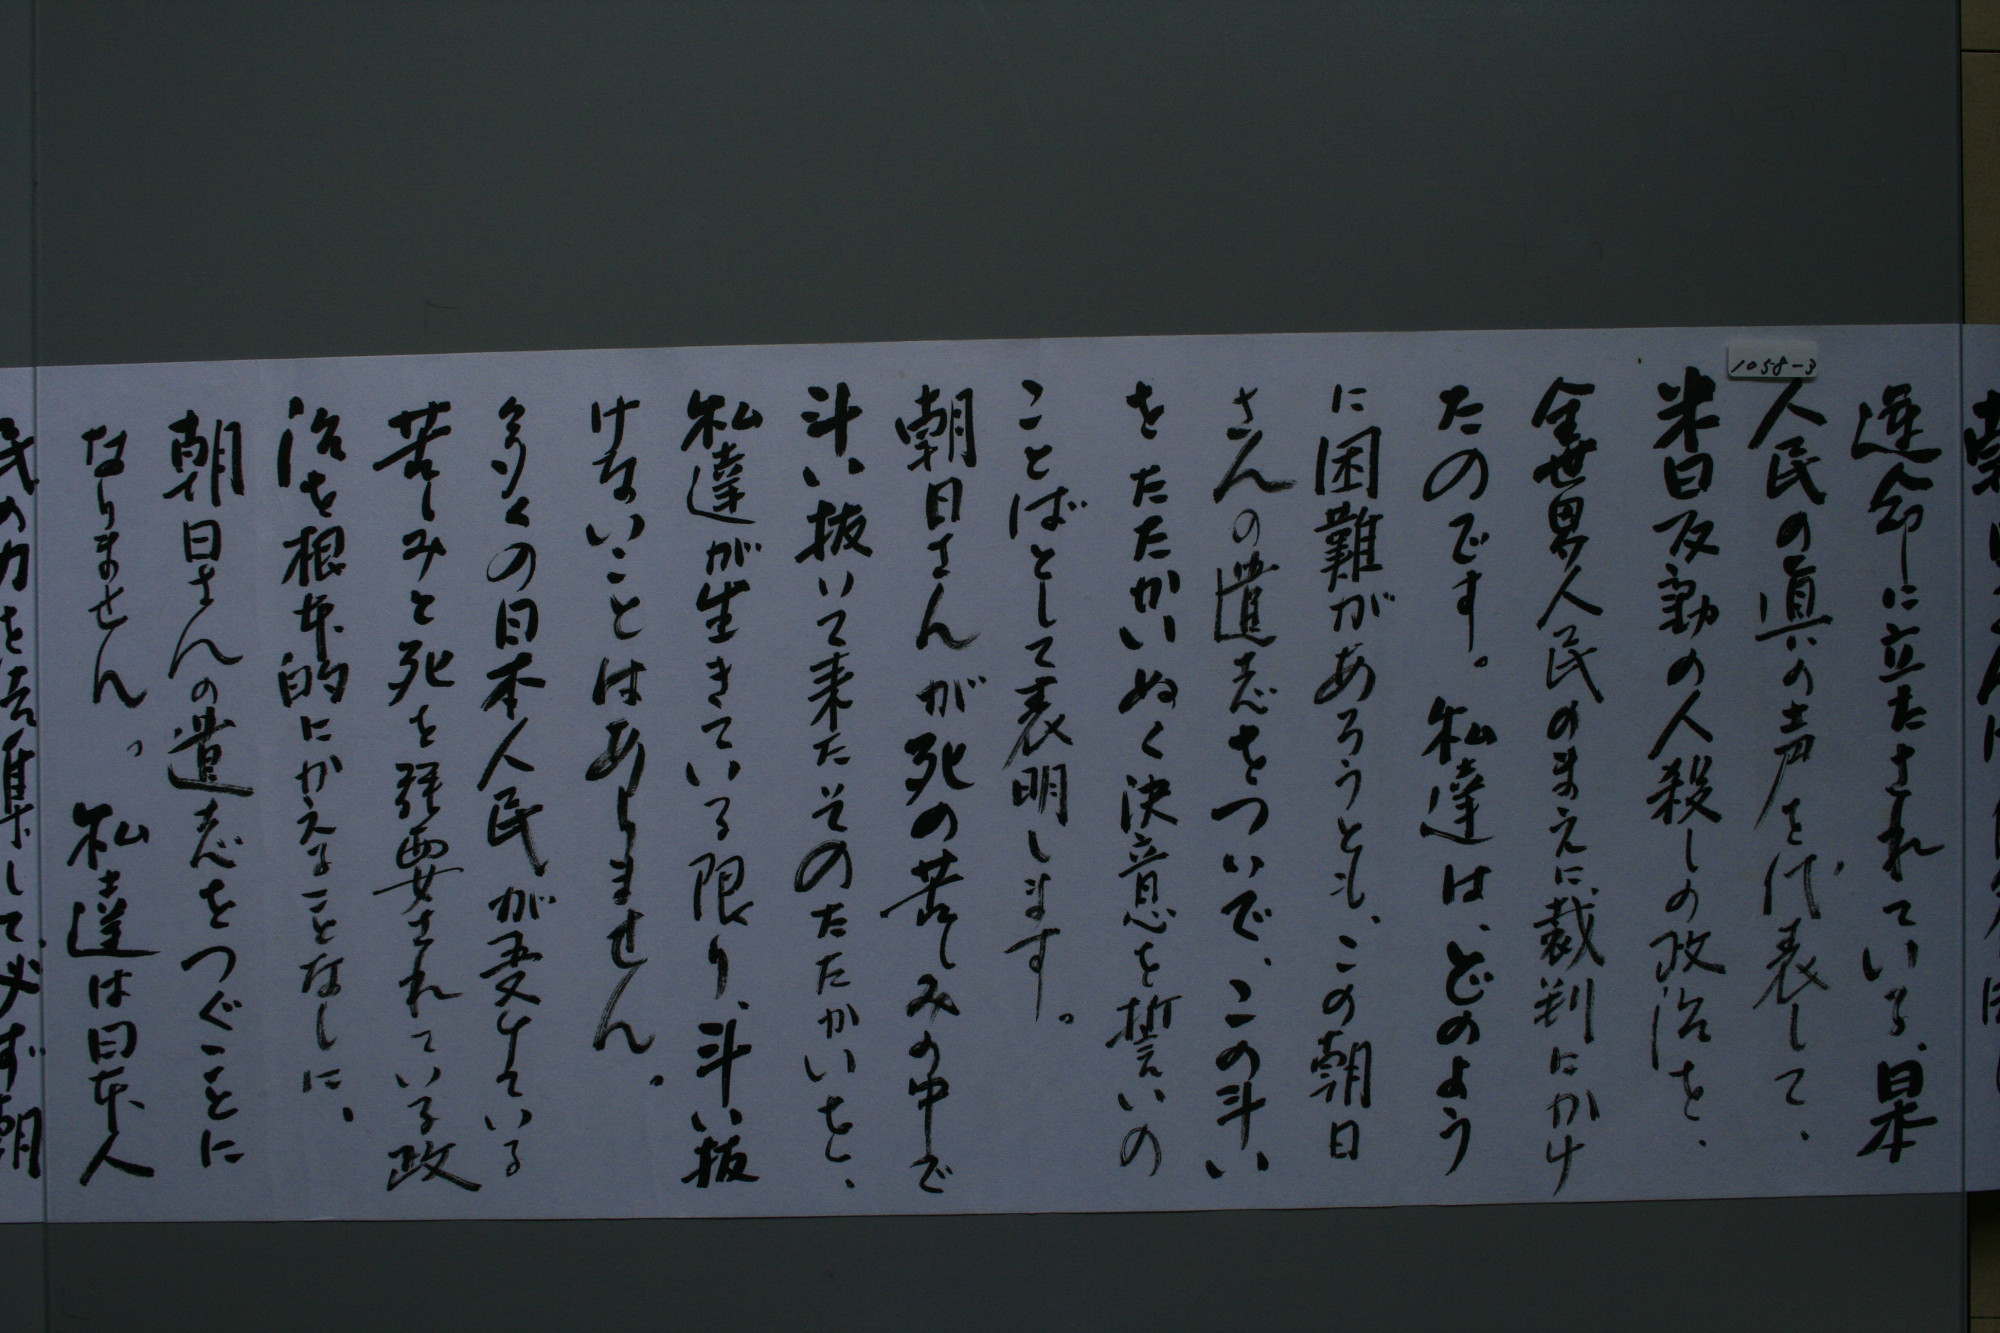 1058-3
逆命に立たされている、日本
人民の真の声を代表して、
米日反動の人殺しの政治を、
全世界人民のまえに裁判にかけ
たのです。私達は、どのよう
に困難があろうとも、この朝日
さんの遺志をついで、この斗い
をたたかいぬく決意を誓いの
ことばとして表明します。
朝日さんが死の苦しみの中で
斗い抜いて来たそのたたかいを、
私達が生きている限り、斗い抜
けないことはありません。
多くの日本人民が受けている
苦しみと死を強要されている政
治を根本的にかえることなしに、
朝日さんの遺志をつぐことに
なりません。私達は日本人
民の力を結集して、必ず朝